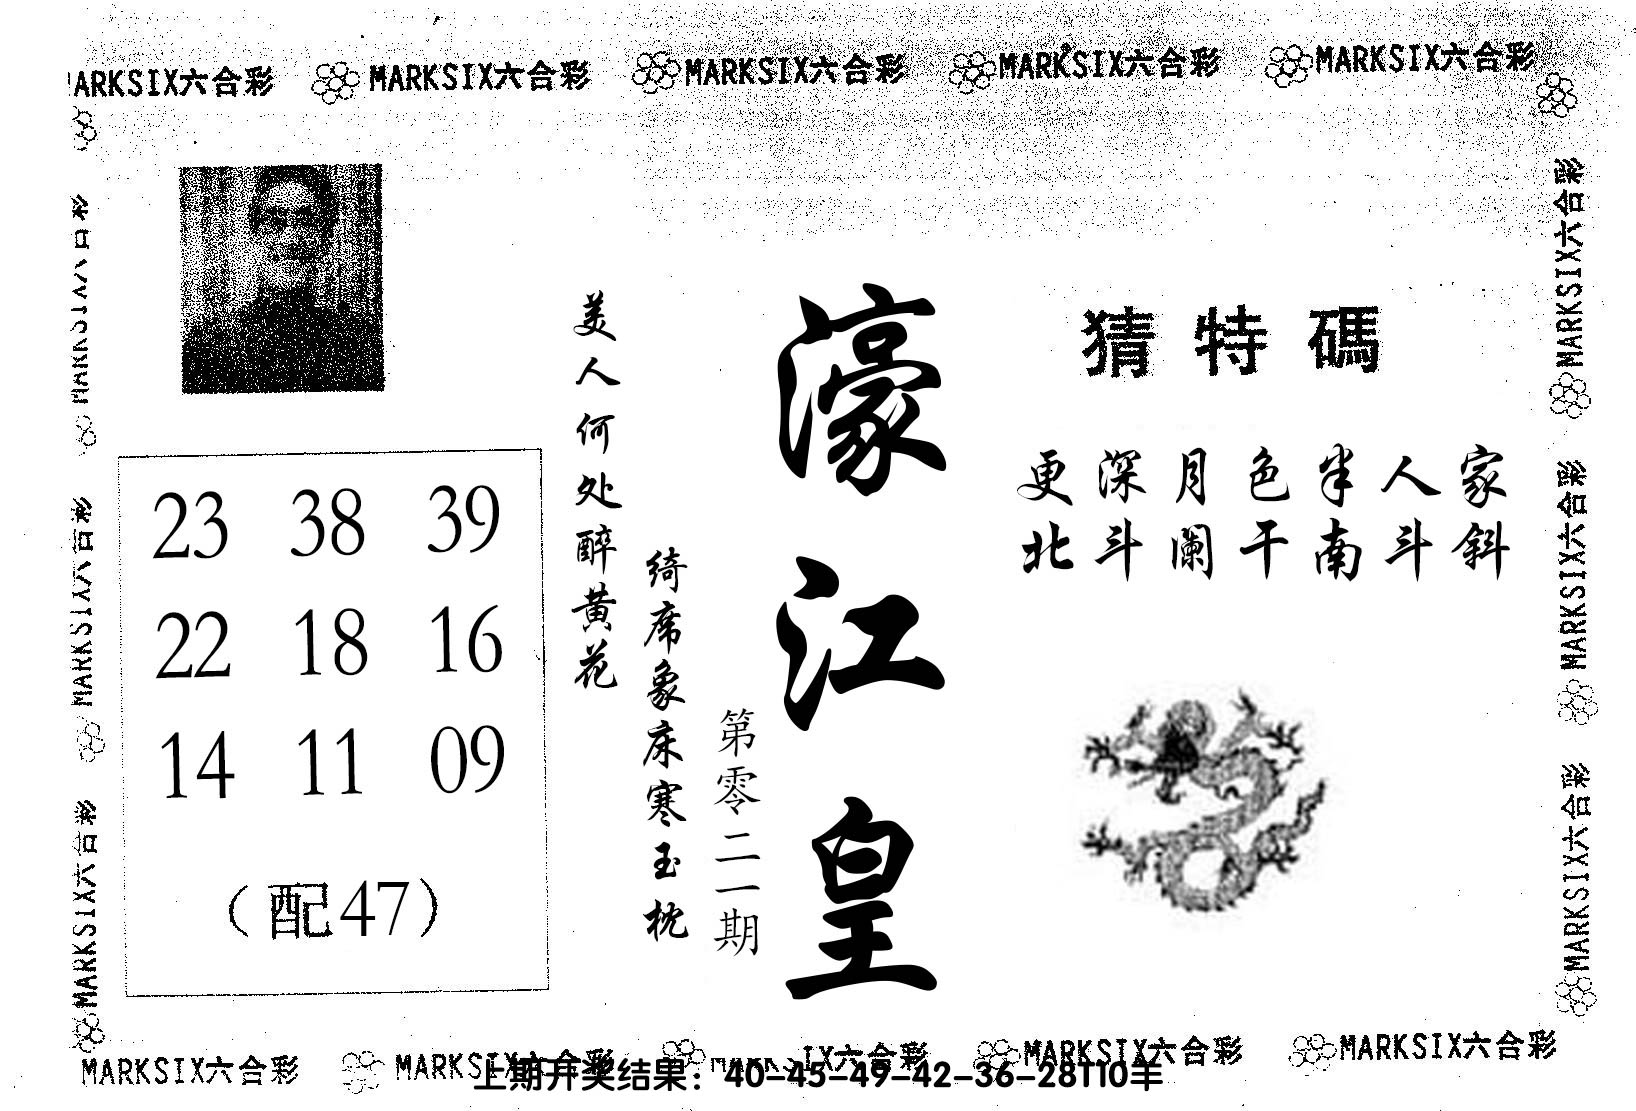 MARKSIX六合彩 MARKSIX六合彩 MARKSIX六合彩 MARKSIX六合彩 MARKSIX六合彩
猜特碼
更深月色半人家
北斗阑干南斗斜
濠江皇
第零二一期
绮席象床寒玉枕
美人何处醉黄花
23 38 39
22 18 16
14 11 09
（配47）
MARKSIX六合彩
MARKSIX六合彩
MARKSIX六合彩
MARKSIX六合彩
MARKSIX六合彩
MARKSIX六合彩
MARKSIX六合彩 MARKSIX六合彩 MARKSIX六合彩 MARKSIX六合彩 MARKSIX六合彩
上期开奖结果：40-45-49-42-36-28T10羊